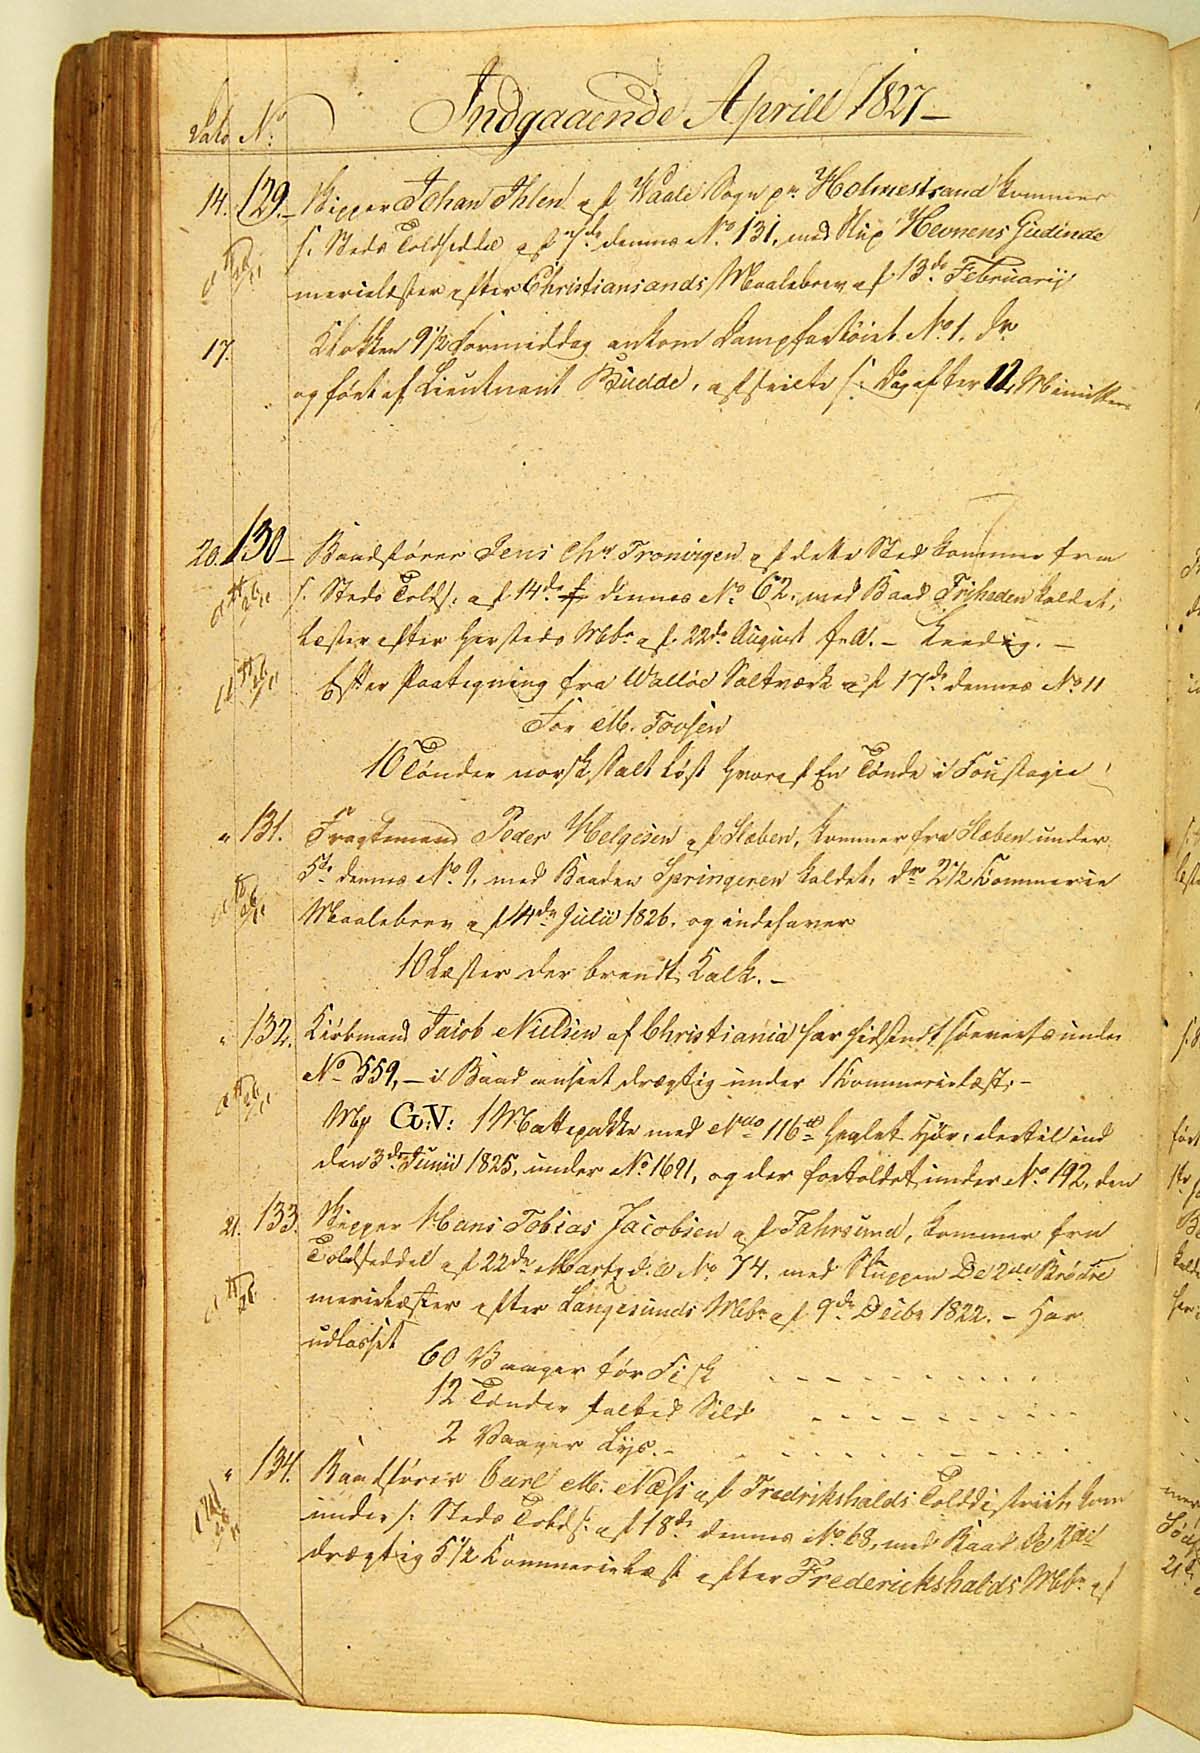 Indgaaende Aprill 1827
Dato No
14. 129. Skipper Johan Ihlen af Waale Sogn pr Holmestrand kommer
f. Steds Toldseddel af 7de dennes No 131, med Slup Hevnens Gudinde
mercielæster efter Christiansands Maalebrev af 13de Februarij
17. Klokken 9 1/2 Formiddag ankom Dampfartöiet No 1.
og fört af Lieutnant Budde, afseilte f. Dag efter 12 Minutters
20. 130 Baadförer Jens Chr Troningen af dette Sted kommer fra
f. Steds Tolds. af 14de dennes No 62, med Baad Friheden kaldet,
læster efter hersteds Mbr af 22de August f. A. – Ledig. –
Efter Paategning fra Walløe Saltværk af 17de dennes No 11
For M. Fovsen
10 Tönder norsk Salt löst hvoraf En Tönde i Foustagie
" 131. Fragtemand Peder Helgesen af Slæben, kommer fra Slæben under
5te dennes No 9, med Baaden Springeren kaldet, dr 2 1/2 Kommercie
Maalebrev af 14de Julii 1826. og indehaver
10 Læster der brendt Kalk. –
" 132. Kiöbmand Jacob Nielsen af Christiania har hidsendt
No 559, – i Baad anseet drægtig under 1 Kommercielæst, –
Mg G:V: 1 Mattepakke med Netto 116 ℔ heglet Hör, dertil ind
den 3de Junii 1825, under No 1691, og der fortoldet under No 192, den
21. 133. Skipper Hans Tobias Jacobsen af Fahrsund, kommer fra
Toldseddel af 22de Marty d. A. No 74. med Sluppen De 2de Brødre
mercielæster efter Langesunds Mbr af 9de Decbr 1822. – Har
udlosset
60 Vaager tör Fisk
12 Tönder saltet Sild
2 Vaager Lys. –
" 134. Baadförer Carl M. Næss af Fredrikshalds Tolddistrict, kom
under f. Steds Tolds. af 18de dennes No 68, med Baad De 2de
drægtig 5 1/2 Kommercielæst efter Frederickshalds Mbr af